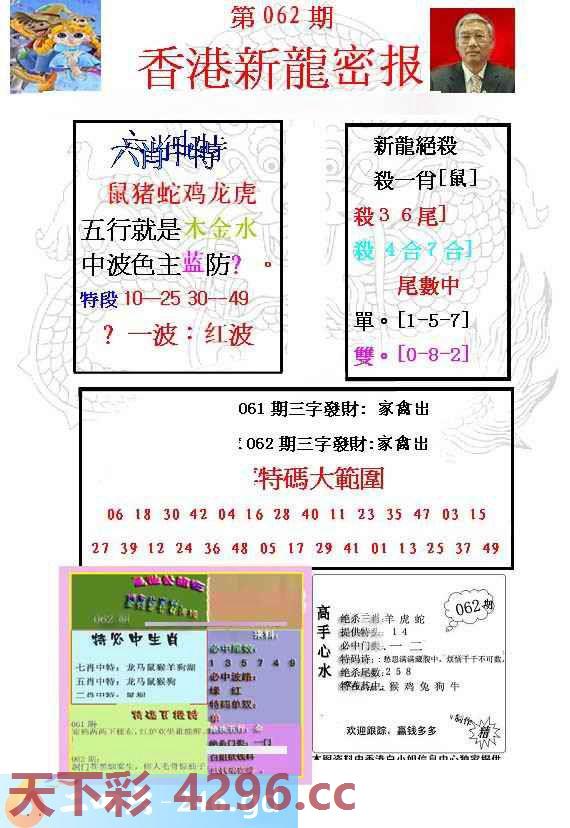 第062期
香港新龍密报
六肖中特
鼠猪蛇鸡龙虎
五行就是木金水
中波色主蓝防?。
特段10—25 30—49
?一波：红波
新龍絕殺
殺一肖[鼠]
殺3 6尾]
殺 4合7合]
尾數中
單。[1-5-7]
雙。[0-8-2]
061期三字發財: 家禽出
:062期三字發財:家禽出
特碼大範圍
06 18 30 42 04 16 28 40 11 23 35 47 03 15
27 39 12 24 36 48 05 17 29 41 01 13 25 37 49
062期
特必中生肖
七肖中特: 龙马鼠猴羊狗湖
五肖中特: 龙马鼠猴狗
必中尾数:
1 3 5 7 4 9
必中波路:
绿 红
特码单双:
单
061期:
062期:
062期
高手心水
绝杀三肖:羊虎蛇
提供特 14
必中门数: 一 二
特码诗: :愁思满满藏腹中，烦恼千千不可数
绝杀尾数:258
猴鸡兔狗牛
欢迎跟踪，赢钱多多
制作
精
本图资料由香港白小姐信息中心独家提供
天下彩 4296.cc